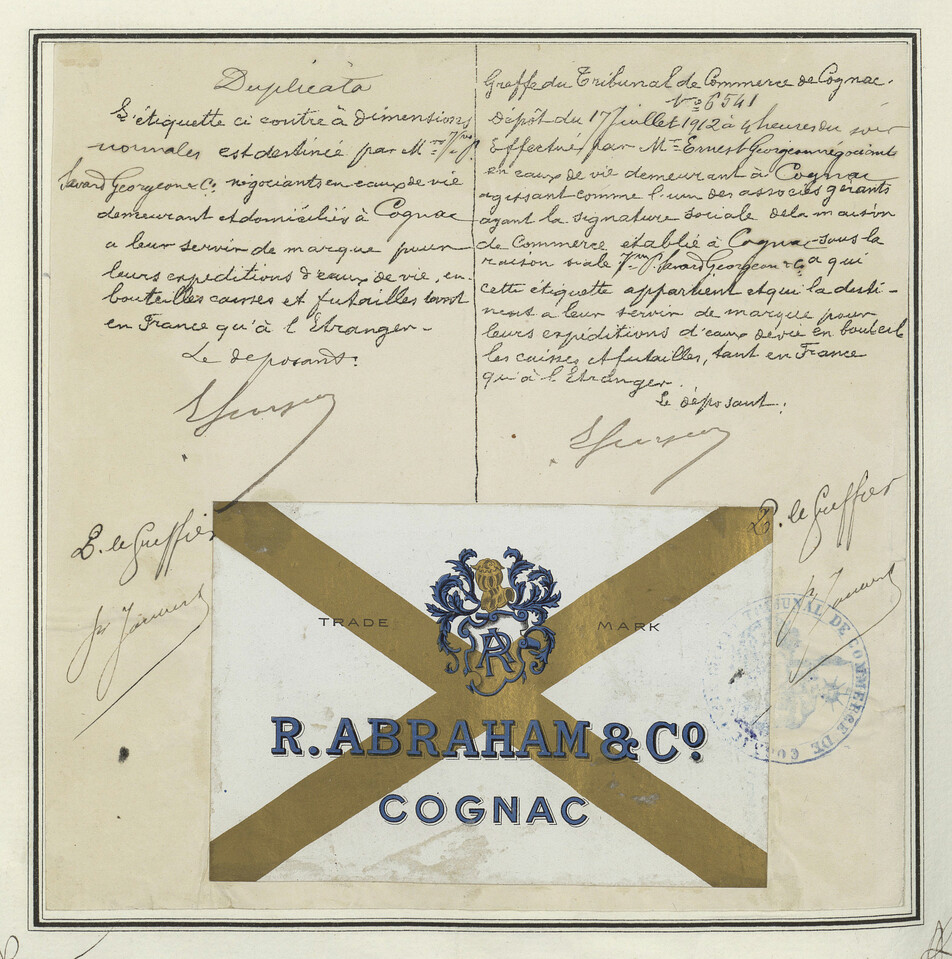 Duplicata
L'étiquette ci contre à dimensions
normales est destinée par Mrs Vve J.
Savard Georgeon & Co négociants en eaux de vie
demeurant et domiciliés à Cognac
a leur servir de marque pour
leurs expeditions d'eaux de vie, en
bouteilles caisses et futailles tant
en France qu'à l'Etranger.
Le deposant:
P. le Greffier
Greffe du Tribunal de Commerce de Cognac.
No 6541
Depôt du 17 Juillet 1912 à 4 heures du soir
Effectué par Mr Ernest Georgeon négociant
en eaux de vie demeurant à Cognac
agissant comme l'un des associés gérants
ayant la signature sociale de la maison
de Commerce établie à Cognac sous la
raison siale Vve J. Savard Georgeon & Co a qui
cette étiquette appartient et qui la desti-
nent a leur servir de marque pour
leurs expéditions d'eaux de vie en bouteil
les caisses et futailles, tant en France
qu'à l'Etranger.
Le déposant:
P. le Greffier
TRADE MARK
AR
R. ABRAHAM & Co
COGNAC
TRIBUNAL DE COMMERCE DE